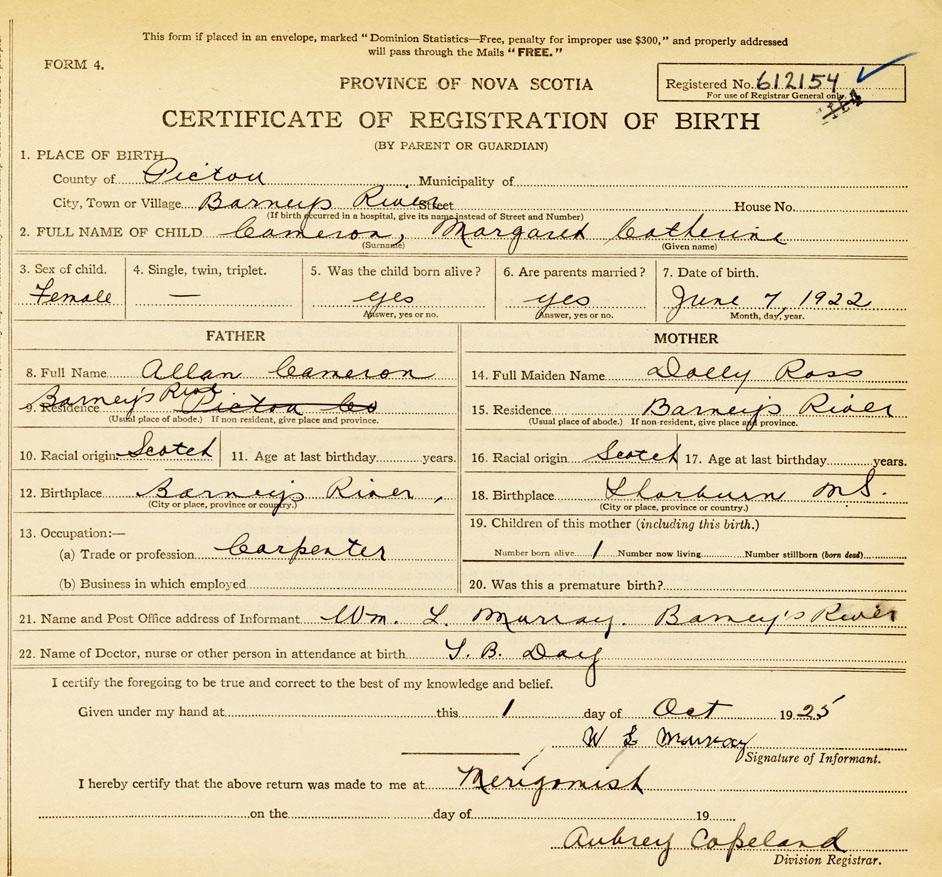 This form if placed in an envelope, marked "Dominion Statistics—Free, penalty for improper use $300," and properly addressed
will pass through the Mails "FREE."
FORM 4.
PROVINCE OF NOVA SCOTIA
Registered No. 612154
For use of Registrar General only.
CERTIFICATE OF REGISTRATION OF BIRTH
(BY PARENT OR GUARDIAN)
1. PLACE OF BIRTH
County of Pictou Municipality of
City, Town or Village Barneys River Street House No.
(If birth occurred in a hospital, give its name instead of Street and Number)
2. FULL NAME OF CHILD Cameron, Margaret Catherine
(Surname) (Given name)
3. Sex of child. 4. Single, twin, triplet. 5. Was the child born alive? 6. Are parents married? 7. Date of birth.
Female — yes yes June 7, 1922
Answer, yes or no. Answer, yes or no. Month, day, year.
FATHER MOTHER
8. Full Name Allan Cameron
14. Full Maiden Name Dolly Ross
Barney's River
9. Residence Pictou Co
(Usual place of abode.) If non-resident, give place and province.
15. Residence Barneys River
(Usual place of abode.) If non-resident, give place and province.
10. Racial origin Scotch 11. Age at last birthday years.
16. Racial origin Scotch 17. Age at last birthday years.
12. Birthplace Barneys River,
(City or place, province or country.)
18. Birthplace Thorburn N.S.
(City or place, province or country.)
13. Occupation:—
(a) Trade or profession Carpenter
(b) Business in which employed
19. Children of this mother (including this birth.)
Number born alive 1 Number now living Number stillborn (born dead)
20. Was this a premature birth?
21. Name and Post Office address of Informant Wm. L. Murray. Barney's River
22. Name of Doctor, nurse or other person in attendance at birth S. B. Day
I certify the foregoing to be true and correct to the best of my knowledge and belief.
Given under my hand at this 1 day of Oct 1925
W L Murray
Signature of Informant.
I hereby certify that the above return was made to me at Merigomish
on the day of 19
Aubrey Copeland
Division Registrar.